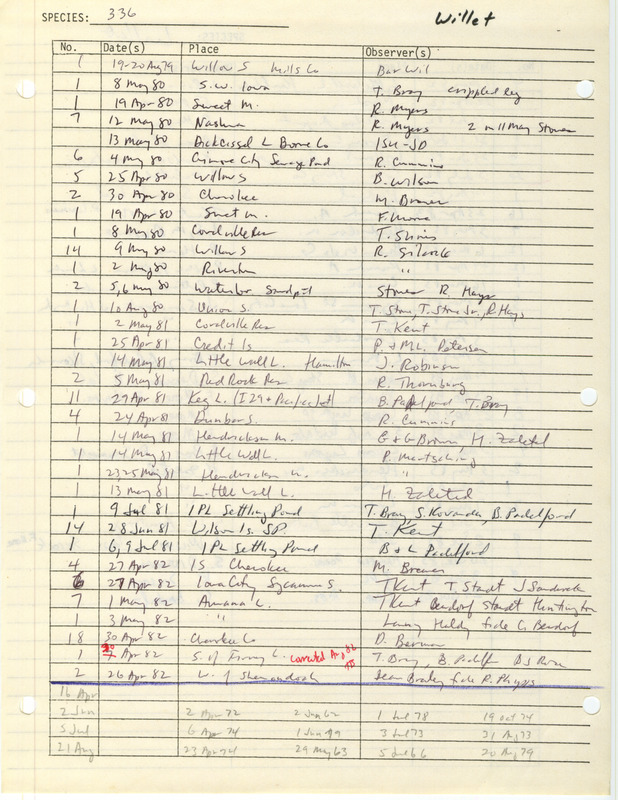 SPECIES: 336 Willet
No. Date(s) Place Observer(s)
1 19-20 Aug 79 Willow S Mills Co Bar Wil
1 8 May 80 S.W. Iowa T. Bray crippled leg
1 19 Apr 80 Sweet M. R. Myers
7 12 May 80 Nashua R. Myers 2 on 11 May Stone
13 May 80 Dickcissel L Boone Co ISU-JD
6 4 May 80 Gilmore City Sewage Pond R. Cummins
5 25 Apr 80 Willow S B. Wilson
2 30 Apr 80 Cherokee M. Brewer
1 19 Apr 80 Sweet M.
1 8 May 80 Coralville Res T. Shires
14 9 May 80 Willow S R. Silcock
1 2 May 80 Riverton "
2 5,6 May 80 Waterloo Sandpit Stones R. Hays
1 10 Aug 80 Union S. T. Stone, T. Stone Jr., R Hays
1 2 May 81 Coralville Res T. Kent
1 25 Apr 81 Credit Is P. & ML. Petersen
1 14 May 81 Little Wall L. Hamilton J. Robinson
2 5 May 81 Red Rock Res R. Thornburg
11 29 Apr 81 Keg L. (I29 + Pacific Jct) B. Padelford T. Bray
4 24 Apr 81 Dunbar S. R. Cummins
1 14 May 81 Hendrickson M. G & G Brown H. Zaletel
1 14 May 81 Little Wall L. P. Martsching
1 23,25 May 81 Hendrickson M. "
1 13 May 81 Little Wall L. H. Zaletel
1 9 Jul 81 IPL Settling Pond T. Bray, S. Kovanda, B. Padelford
14 28 Jun 81 Wilson Is. SP. T. Kent
1 6, 9 Jul 81 IPL Settling Pond B & L Padelford
4 27 Apr 82 IS Cherokee M. Brewer
6 27 Apr 82 Iowa City Sycamore S. T Kent T. Staudt J Sandrock
7 1 May 82 Amana L. T Kent Bendorf Staudt Huntington
1 3 May 82 " Larry Hald fide C. Bendorf
18 30 Apr 82 Cherokee Co D. Bierman
1 Apr 82 S. of L. corrected T. Bray, B. Padelford BJ Rose
2 26 Apr 82 W. of Shenandoah Jean Braley fide R. Phipps
16 Apr
2 Jun 2 Apr 72 2 Jun 62 1 Jul 78 19 Oct 74
5 Jul 6 Apr 74 1 Jun 79 3 Jul 73 31 Aug 73
21 Aug 23 Apr 74 29 May 63 5 Jul 66 20 Aug 79